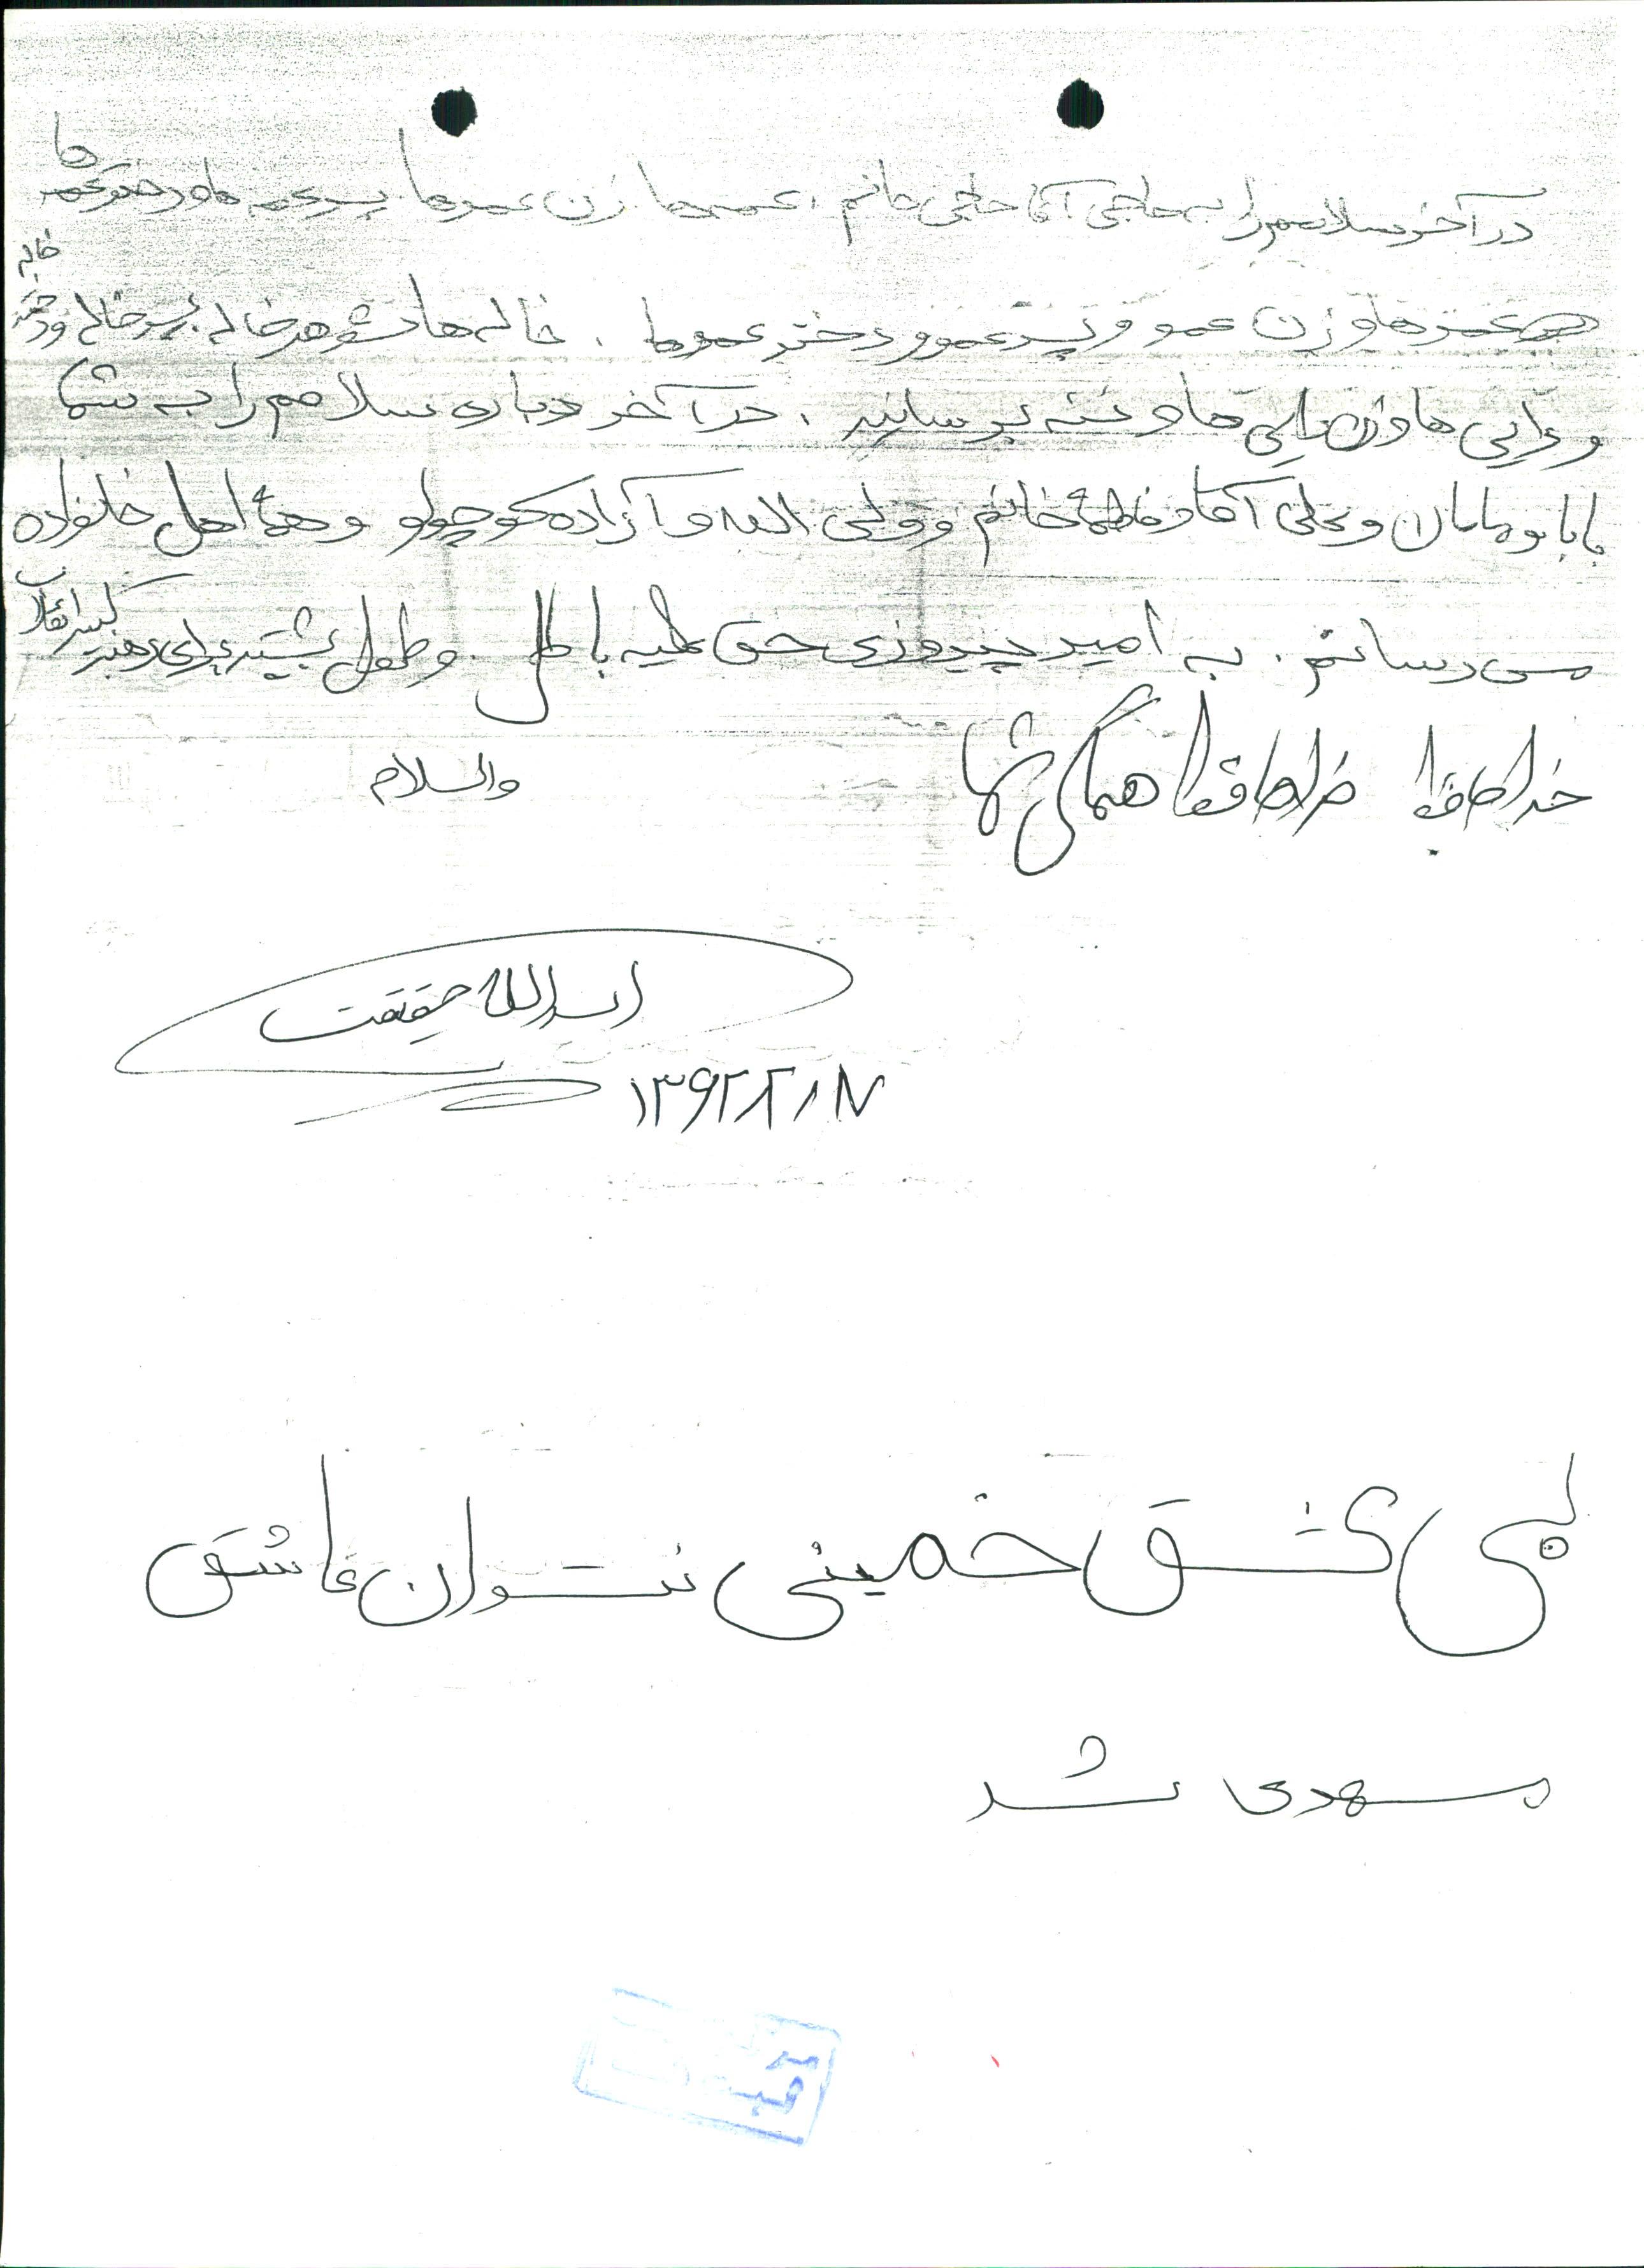 در آخر سلامم را به حاجی آقا حاجی خانم ، عمه ها زن عمو ها پسر عمه ها و دختر عمه ها
عمو ها و زن عمو و پسر عمو و دختر عموها . خاله ها شوهر خاله پسر خاله و دختر خاله
و دایی ها و زن دایی ها و ننه برسانید . در آخر دوباره سلامم را به شما
بابا و مامان و علی آقا و فاطمه خانم و ولی الله و آزاده کوچولو و همه اهل خانواده
می رسانم . به امید پیروزی حق علیه باطل . و طول عمر بیشتر برای رهبر کبیر انقلاب
خداحافظ خداحافظ همگی شما
والسلام
اسدالله حقیقت
۱۳۶۲/۲/۱۷
بی عشق خمینی نتوان عاشق
مهدی شد